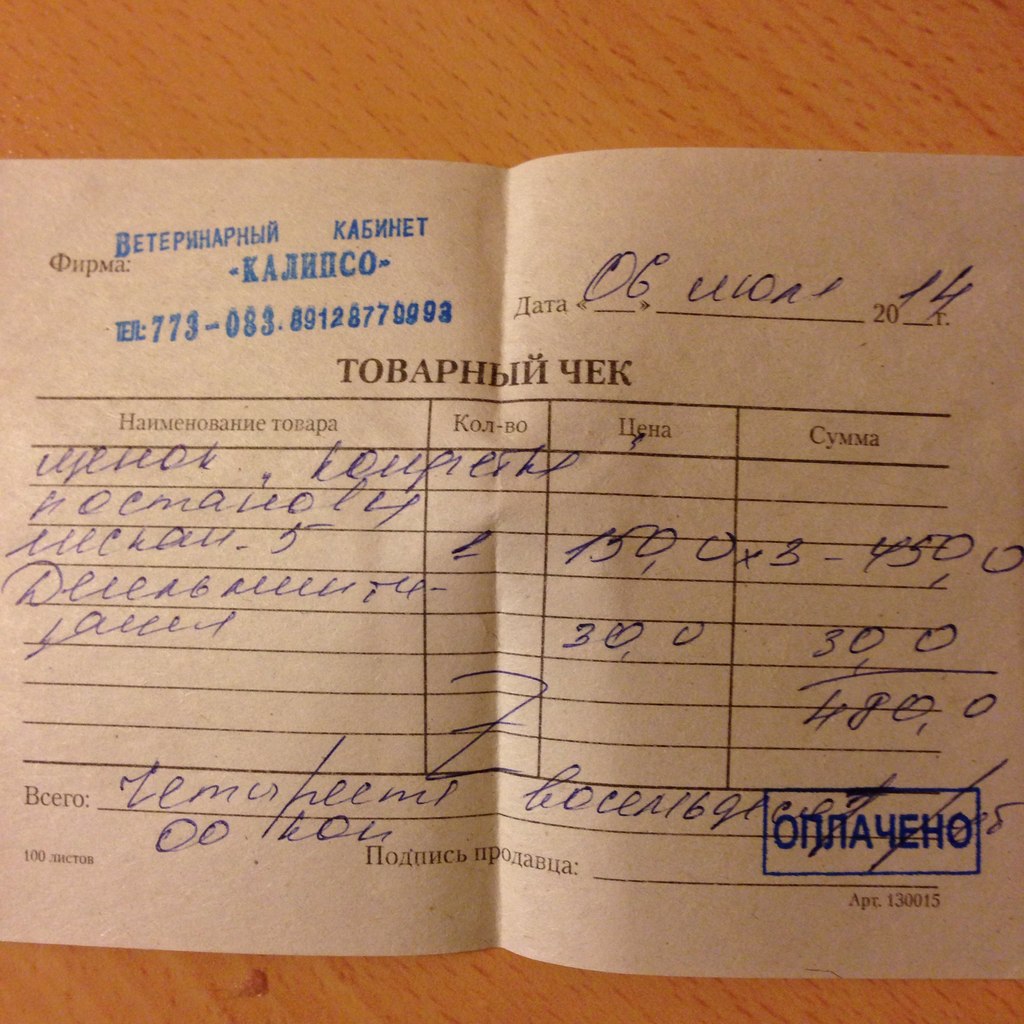 ВЕТЕРИНАРНЫЙ КАБИНЕТ
Фирма: «КАЛИПСО»
ТЕЛ: 773-083. 89128779993
Дата «06» июля 2014 г.
ТОВАРНЫЙ ЧЕК
Наименование товара Кол-во Цена Сумма
щенок
постановка
5 1 150,0 x 3 - 450,0
30,0 30,0
480,0
Всего: Четыреста восемьдесят руб
00 коп
ОПЛАЧЕНО
100 листов Подпись продавца:
Арт. 130015